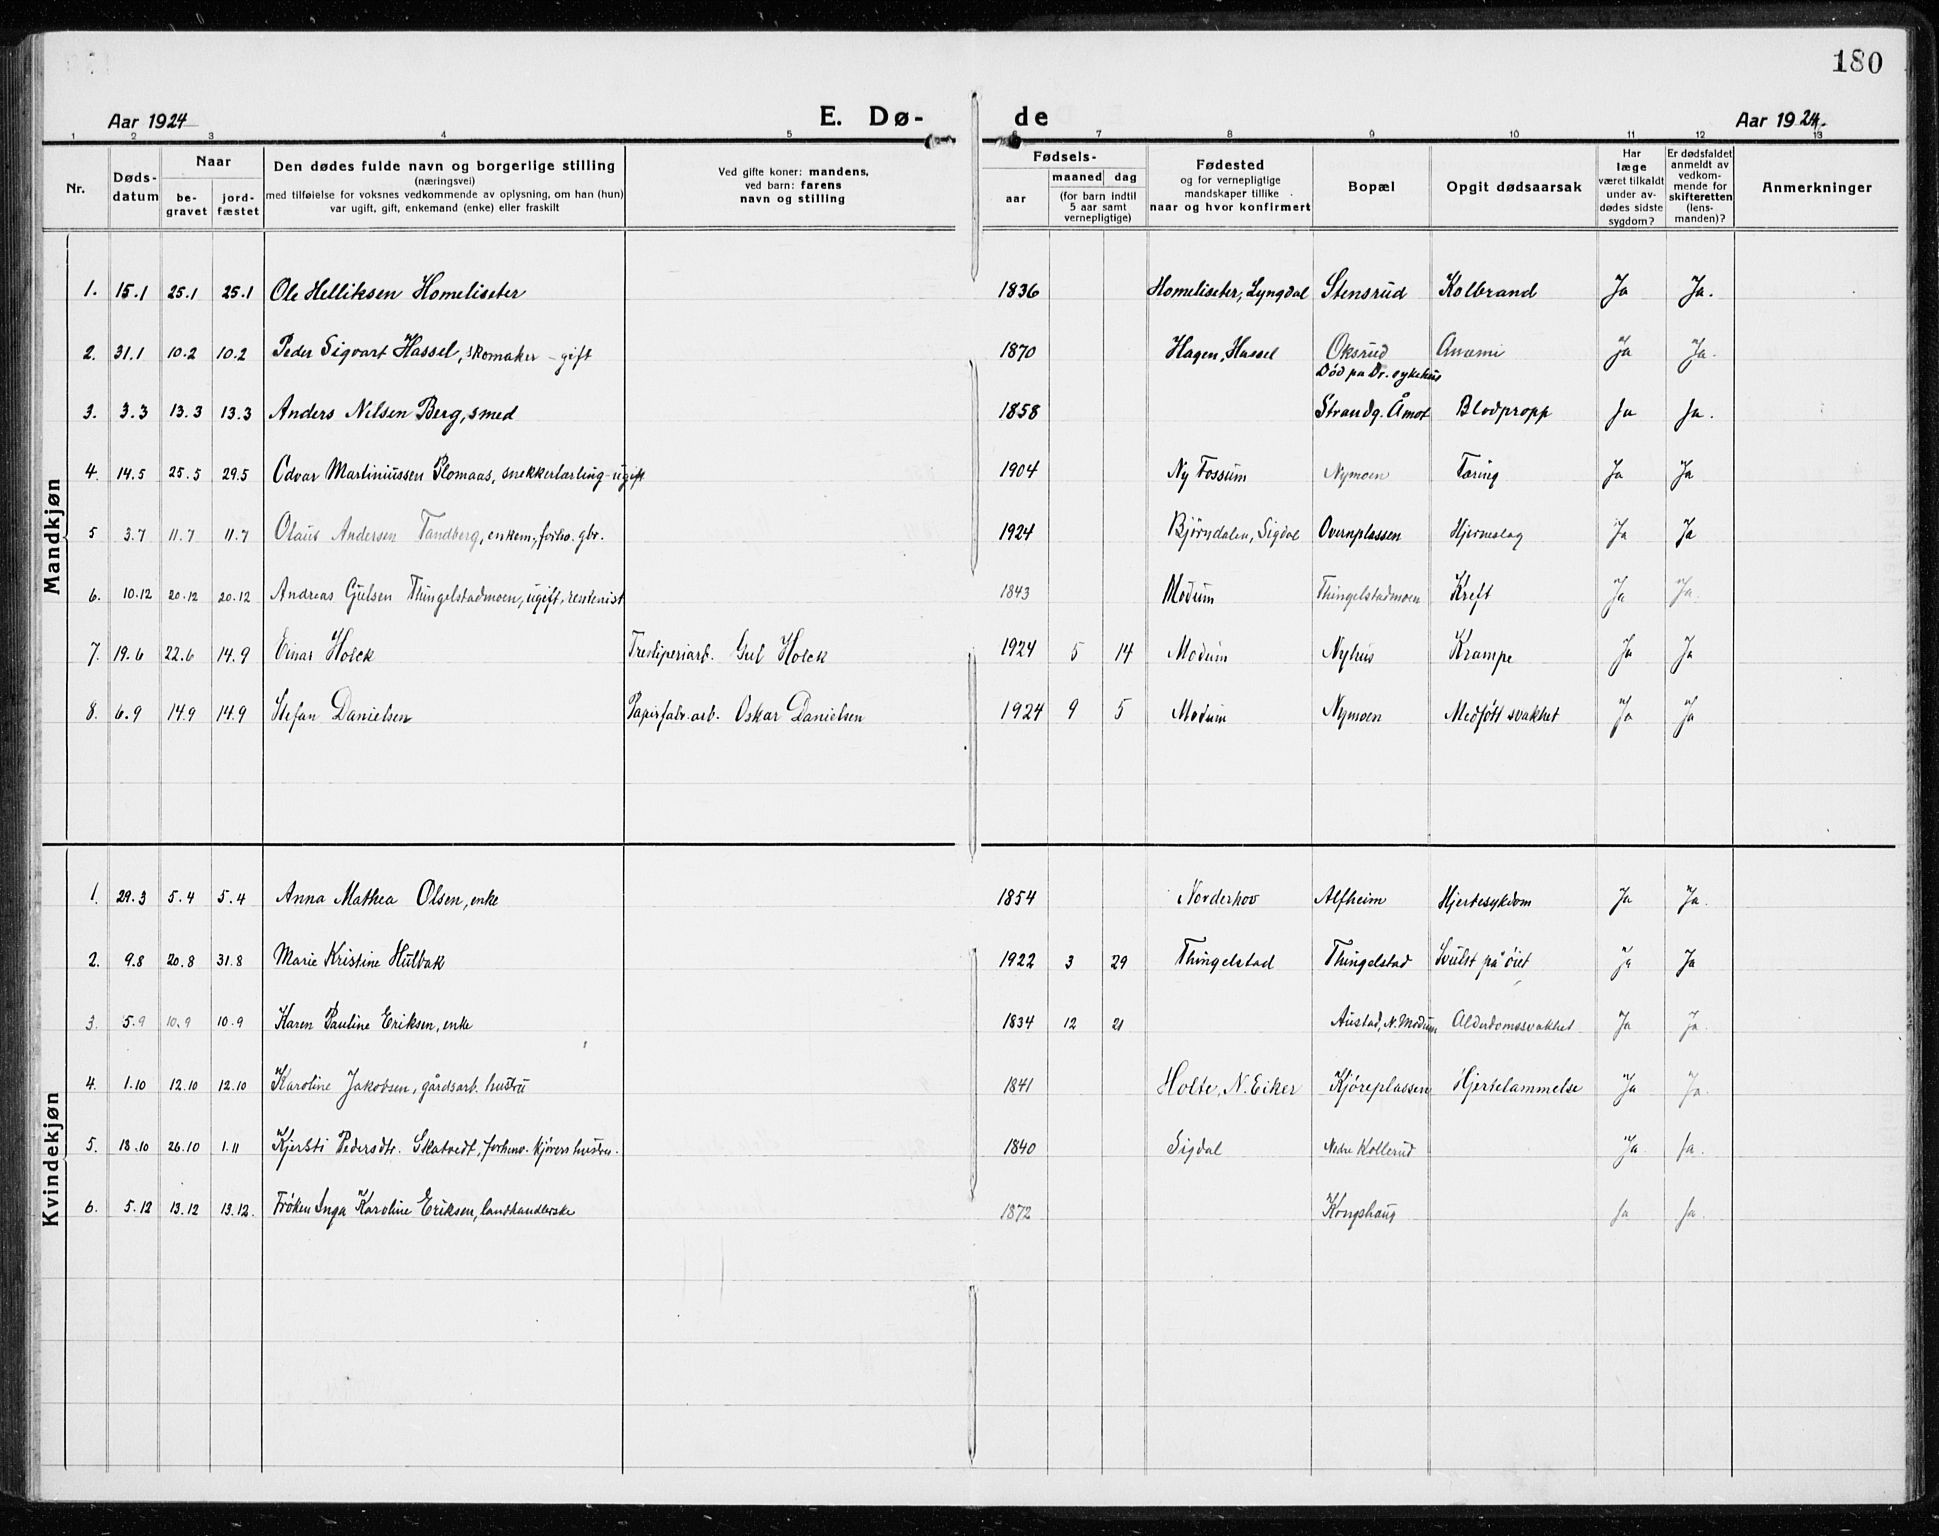 180
Aar 1924 E. Dø- de Aar 1924.
1 2 3 4 5 6 7 8 9 10 11 12 13
Nr. Døds-datum Naar be-gravet jord-fæstet Den dødes fulde navn og borgerlige stilling (næringsvei) med tilføielse for voksnes vedkommende av oplysning, om han (hun) var ugift, gift, enkemand (enke) eller fraskilt Ved gifte koner: mandens, ved barn: farens navn og stilling Fødsels- aar maaned dag (for barn indtil 5 aar samt vernepligtige) Fødested og for vernepligtige mandskaper tillike naar og hvor konfirmert Bopæl Opgit dødsaarsak Har læge været tilkaldt under av-dødes sidste sygdom? Er dødsfaldet anmeldt av vedkom-mende for skifteretten (lens-manden)? Anmerkninger
Mandkjøn
1. 15.1 25.1 25.1 Ole Helliksen Homeliseter 1836 Homeliseter, Lyngdal Stensrud Kolbrand Ja Ja.
2. 31.1 10.2 10.2 Peder Sigvart Hassel, skomaker - gift 1870 Hagen, Hassel Oksrud Anæmi Ja Ja.
Død pa Dr. sykehus
3. 3.3 13.3 13.3 Anders Nilsen Berg, smed 1858 Strandg. Åmot Blodpropp Ja Ja.
4. 14.5 25.5 29.5 Odvar Martiniussen Plomaas, snekkerlærling - ugift 1904 Ny Fossum Nymoen Tæring Ja Ja
5 3.7 11.7 11.7 Olaus Andersen Tandberg, enkem, forhv. gbr. 1924 Bjørndalen, Sigdal Overnplassen Hjerneslag Ja Ja
6. 10.12 20.12 20.12 Andreas Gulsen Thingelstadmoen, ugift, rentenist 1843 Modum Thingelstadmoen Kreft Ja Ja.
7. 19.6 22.6 14.9 Einar Holck Tresliperiarb. Gul Holck 1924 5 14 Modum Nyhus Krampe Ja Ja
8. 6.9 14.9 14.9 Stefan Danielsen Papirfabr.arb. Oskar Danielsen 1924 9 5 Modum Nymoen Medfött svakhet Ja Ja
Kvindekjøn
1. 29.3 5.4 5.4 Anna Mathea Olsen, enke 1854 Norderhov Alfheim Hjertesykdom Ja Ja.
2. 9.8 20.8 31.8 Marie Kristine Hulbak 1922 3 29 Thingelstad Thingelstad Svulst på öiet Ja Ja
3. 5.9 10.9 10.9 Karen Pauline Eriksen, enke 1834 12 21 Austad, N. Modum Alderdomssvakhet Ja Ja.
4. 1.10 12.10 12.10 Karoline Jakobsen, gårdsarb. hustru 1841 Holte, N. Eiker Kjöreplassen Hjertelammelse Ja Ja.
5. 18.10 26.10 1.11 Kjersti Pedersdtr. Skatvedt, forhenv. kjörers hustru. 1840 Sigdal Nedre Kollerud Ja Ja.
6. 5.12 13.12 13.12. Frøken Inga Karoline Eriksen, landhandlerske 1872 Kongshaug Ja Ja.